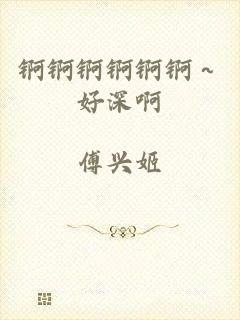 锕锕锕锕锕锕～
好深啊
傅兴姬